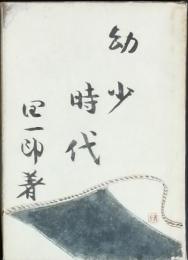 幼少
時代
潤一郎著